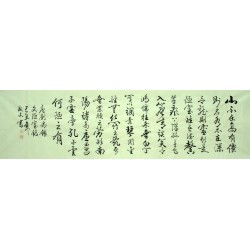 山不在高有仙
則名水不在深
有龍則靈斯是
陋室惟吾德馨
苔痕上階綠草
色入簾青談笑有
鴻儒往來無白丁
可以調素琴閱金
經無絲竹之亂耳
無案牘之勞形南
陽諸葛廬西蜀
子雲亭孔子云
何陋之有
唐劉禹錫
陋室銘